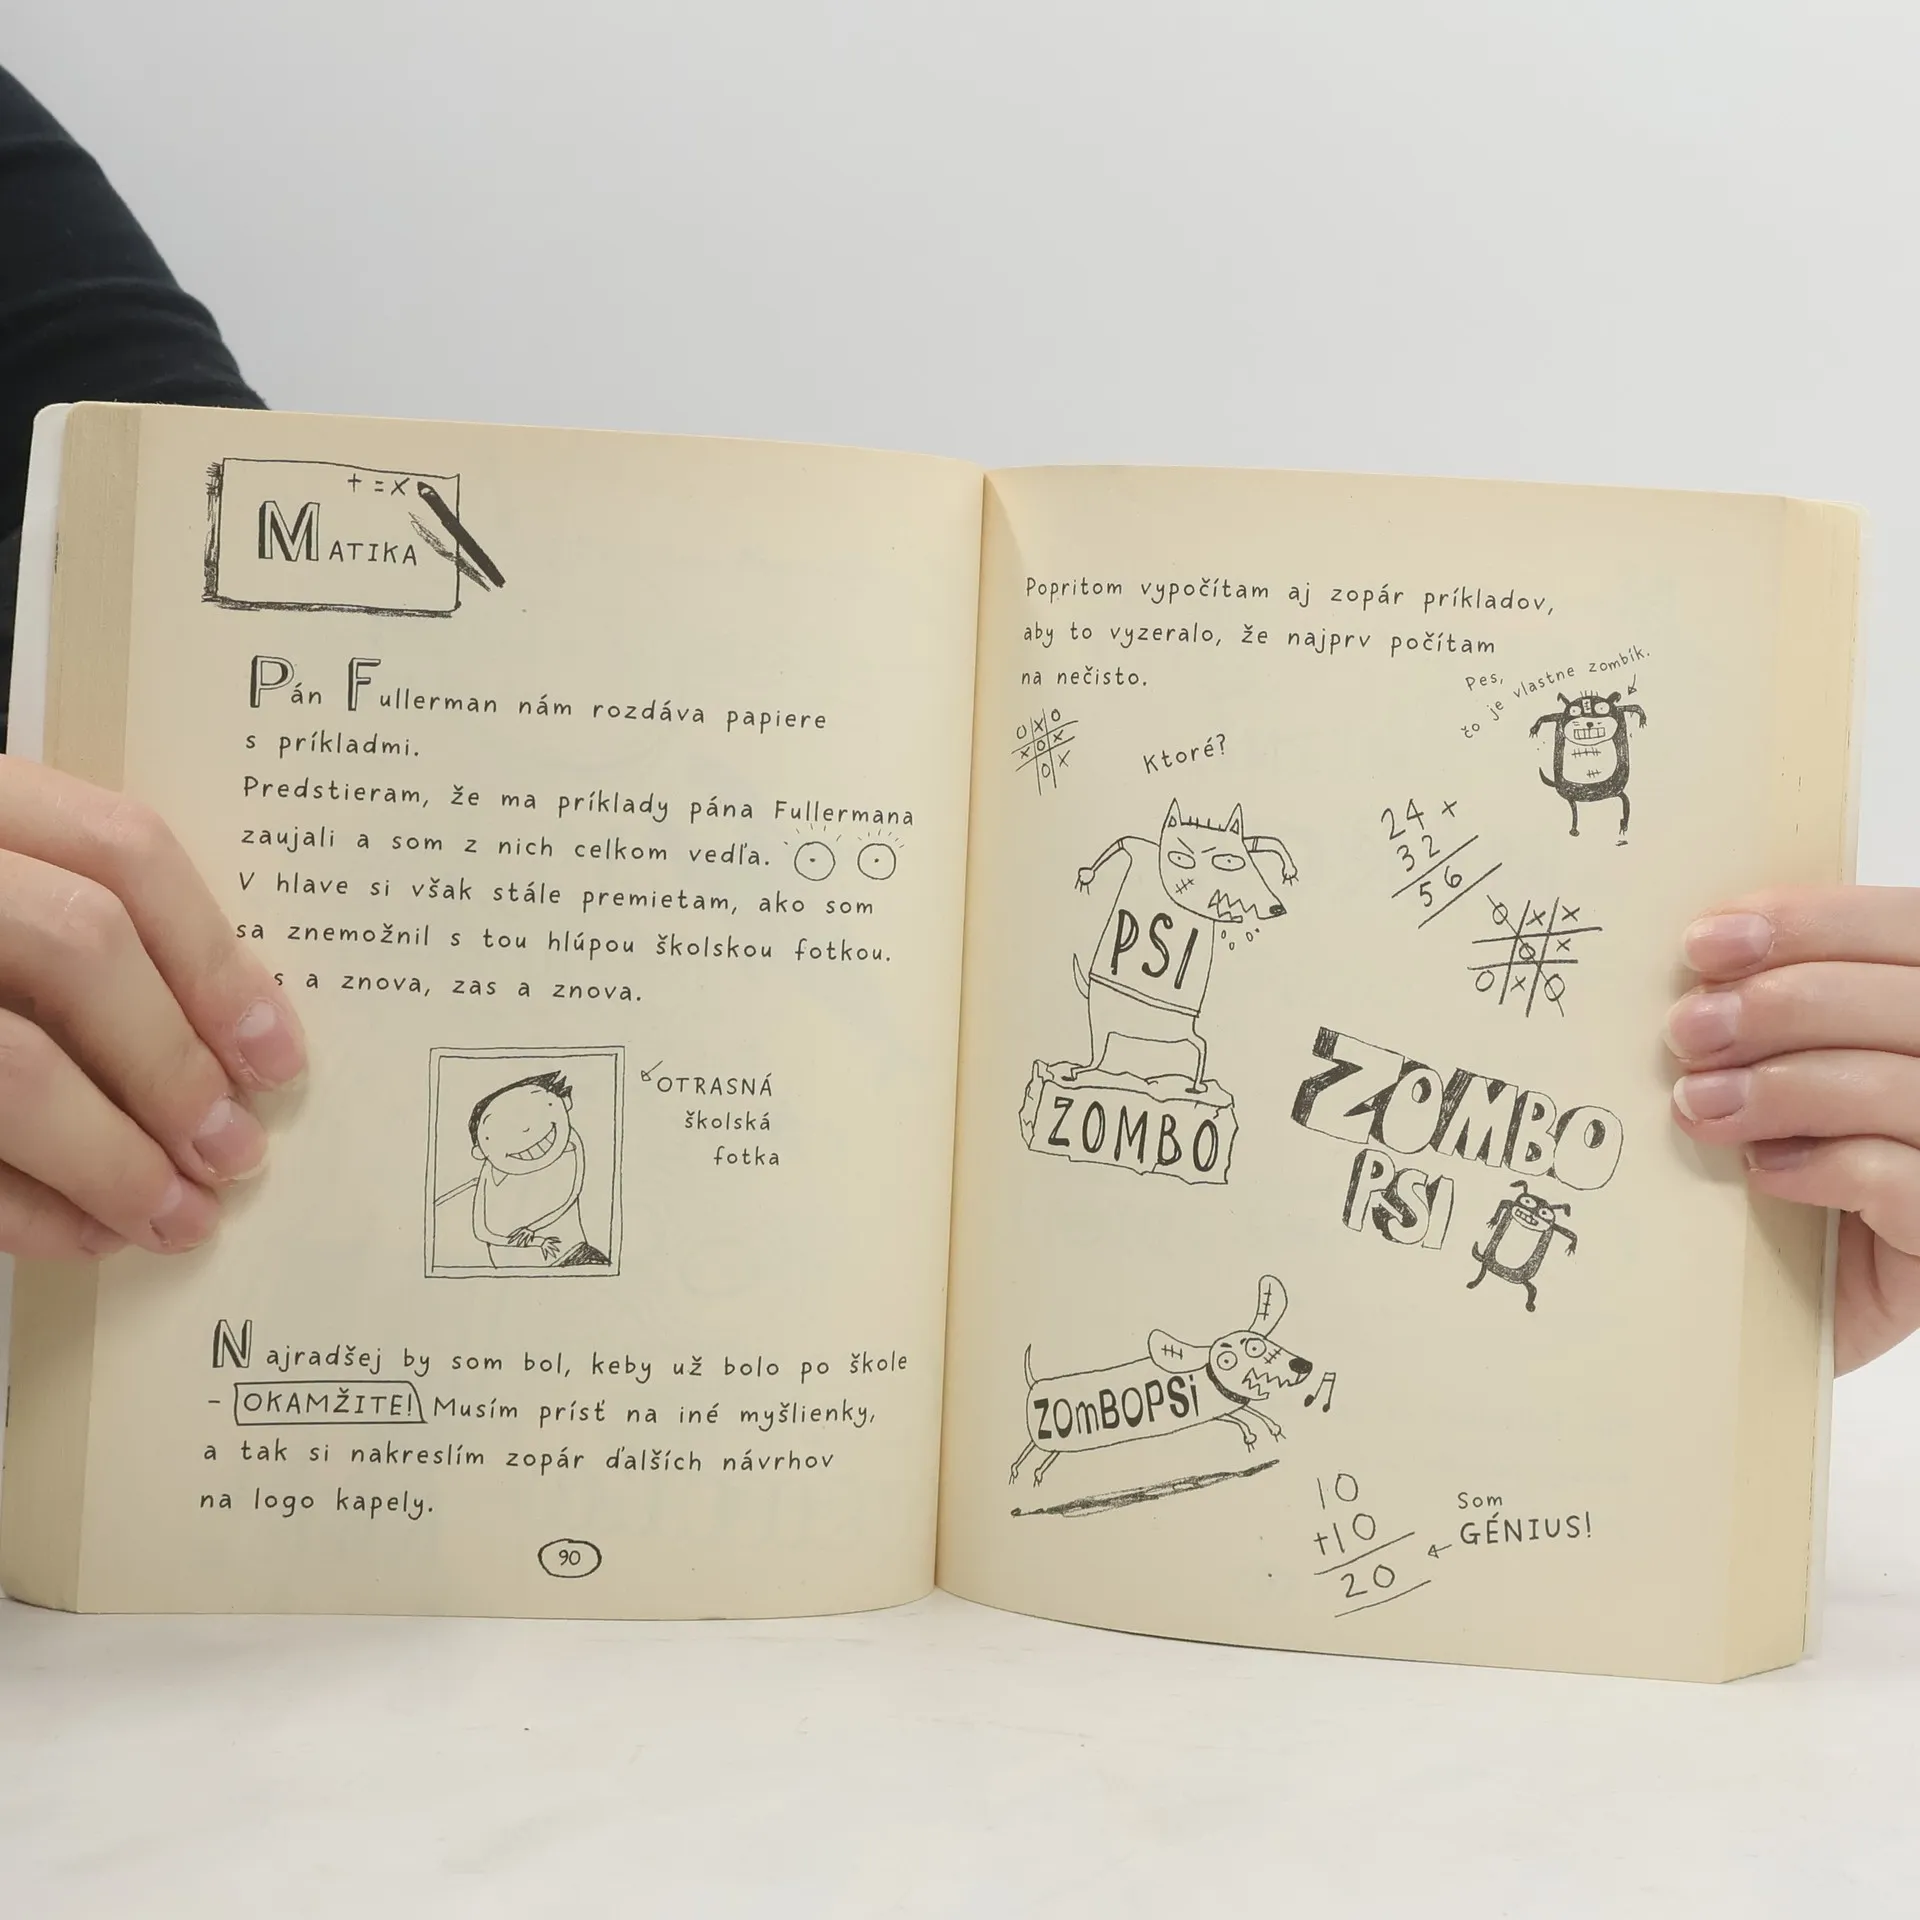 + = x
MATIKA
Pán Fullerman nám rozdáva papiere
s príkladmi.
Predstieram, že ma príklady pána Fullermana
zaujali a som z nich celkom vedľa.
V hlave si však stále premietam, ako som
sa znemožnil s tou hlúpou školskou fotkou.
s a znova, zas a znova.
OTRASNÁ
školská
fotka
Najradšej by som bol, keby už bolo po škole
– OKAMŽITE! Musím prísť na iné myšlienky,
a tak si nakreslím zopár ďalších návrhov
na logo kapely.
90
Popritom vypočítam aj zopár príkladov,
aby to vyzeralo, že najprv počítam
na nečisto.
Pes,
čo je vlastne zombík.
O X O
X O X
O X
Ktoré?
24 x
32
56
O X X
O X
O X O
PSI
ZOMBO
ZOMBO
PSI
ZOmBOPSi
10
+10
20
Som
GÉNIUS!